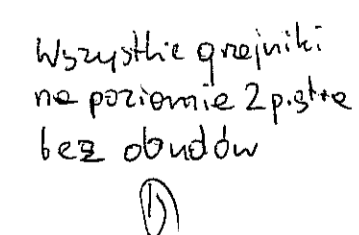 Wszystkie grzejniki
na poziomie 2 p.
bez obudów
1)